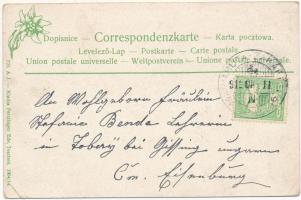 Dopisnice – Correspondenzkarte – Karta pocztowa.
Levelező-Lap – Postkarte – Carte postale.
Union postale universelle – Weltpostverein – Unione postale
An Wohlgeborn Fräulein
Stefanie Benda Lehrerin
in Tobaj bei Güssing ungarn
Com. Eisenburg